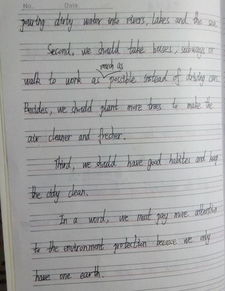 No. Date
pouring dirty water into rivers, lakes and the sea.
Second, we should take buses, subways or
much as
walk to work as possible instead of driving cars.
Besides, we should plant more trees to make the
air cleaner and fresher.
Third, we should have good habites and keep
the city clean.
In a word, we must pay more attention
to the environment protection because we only
have one earth.